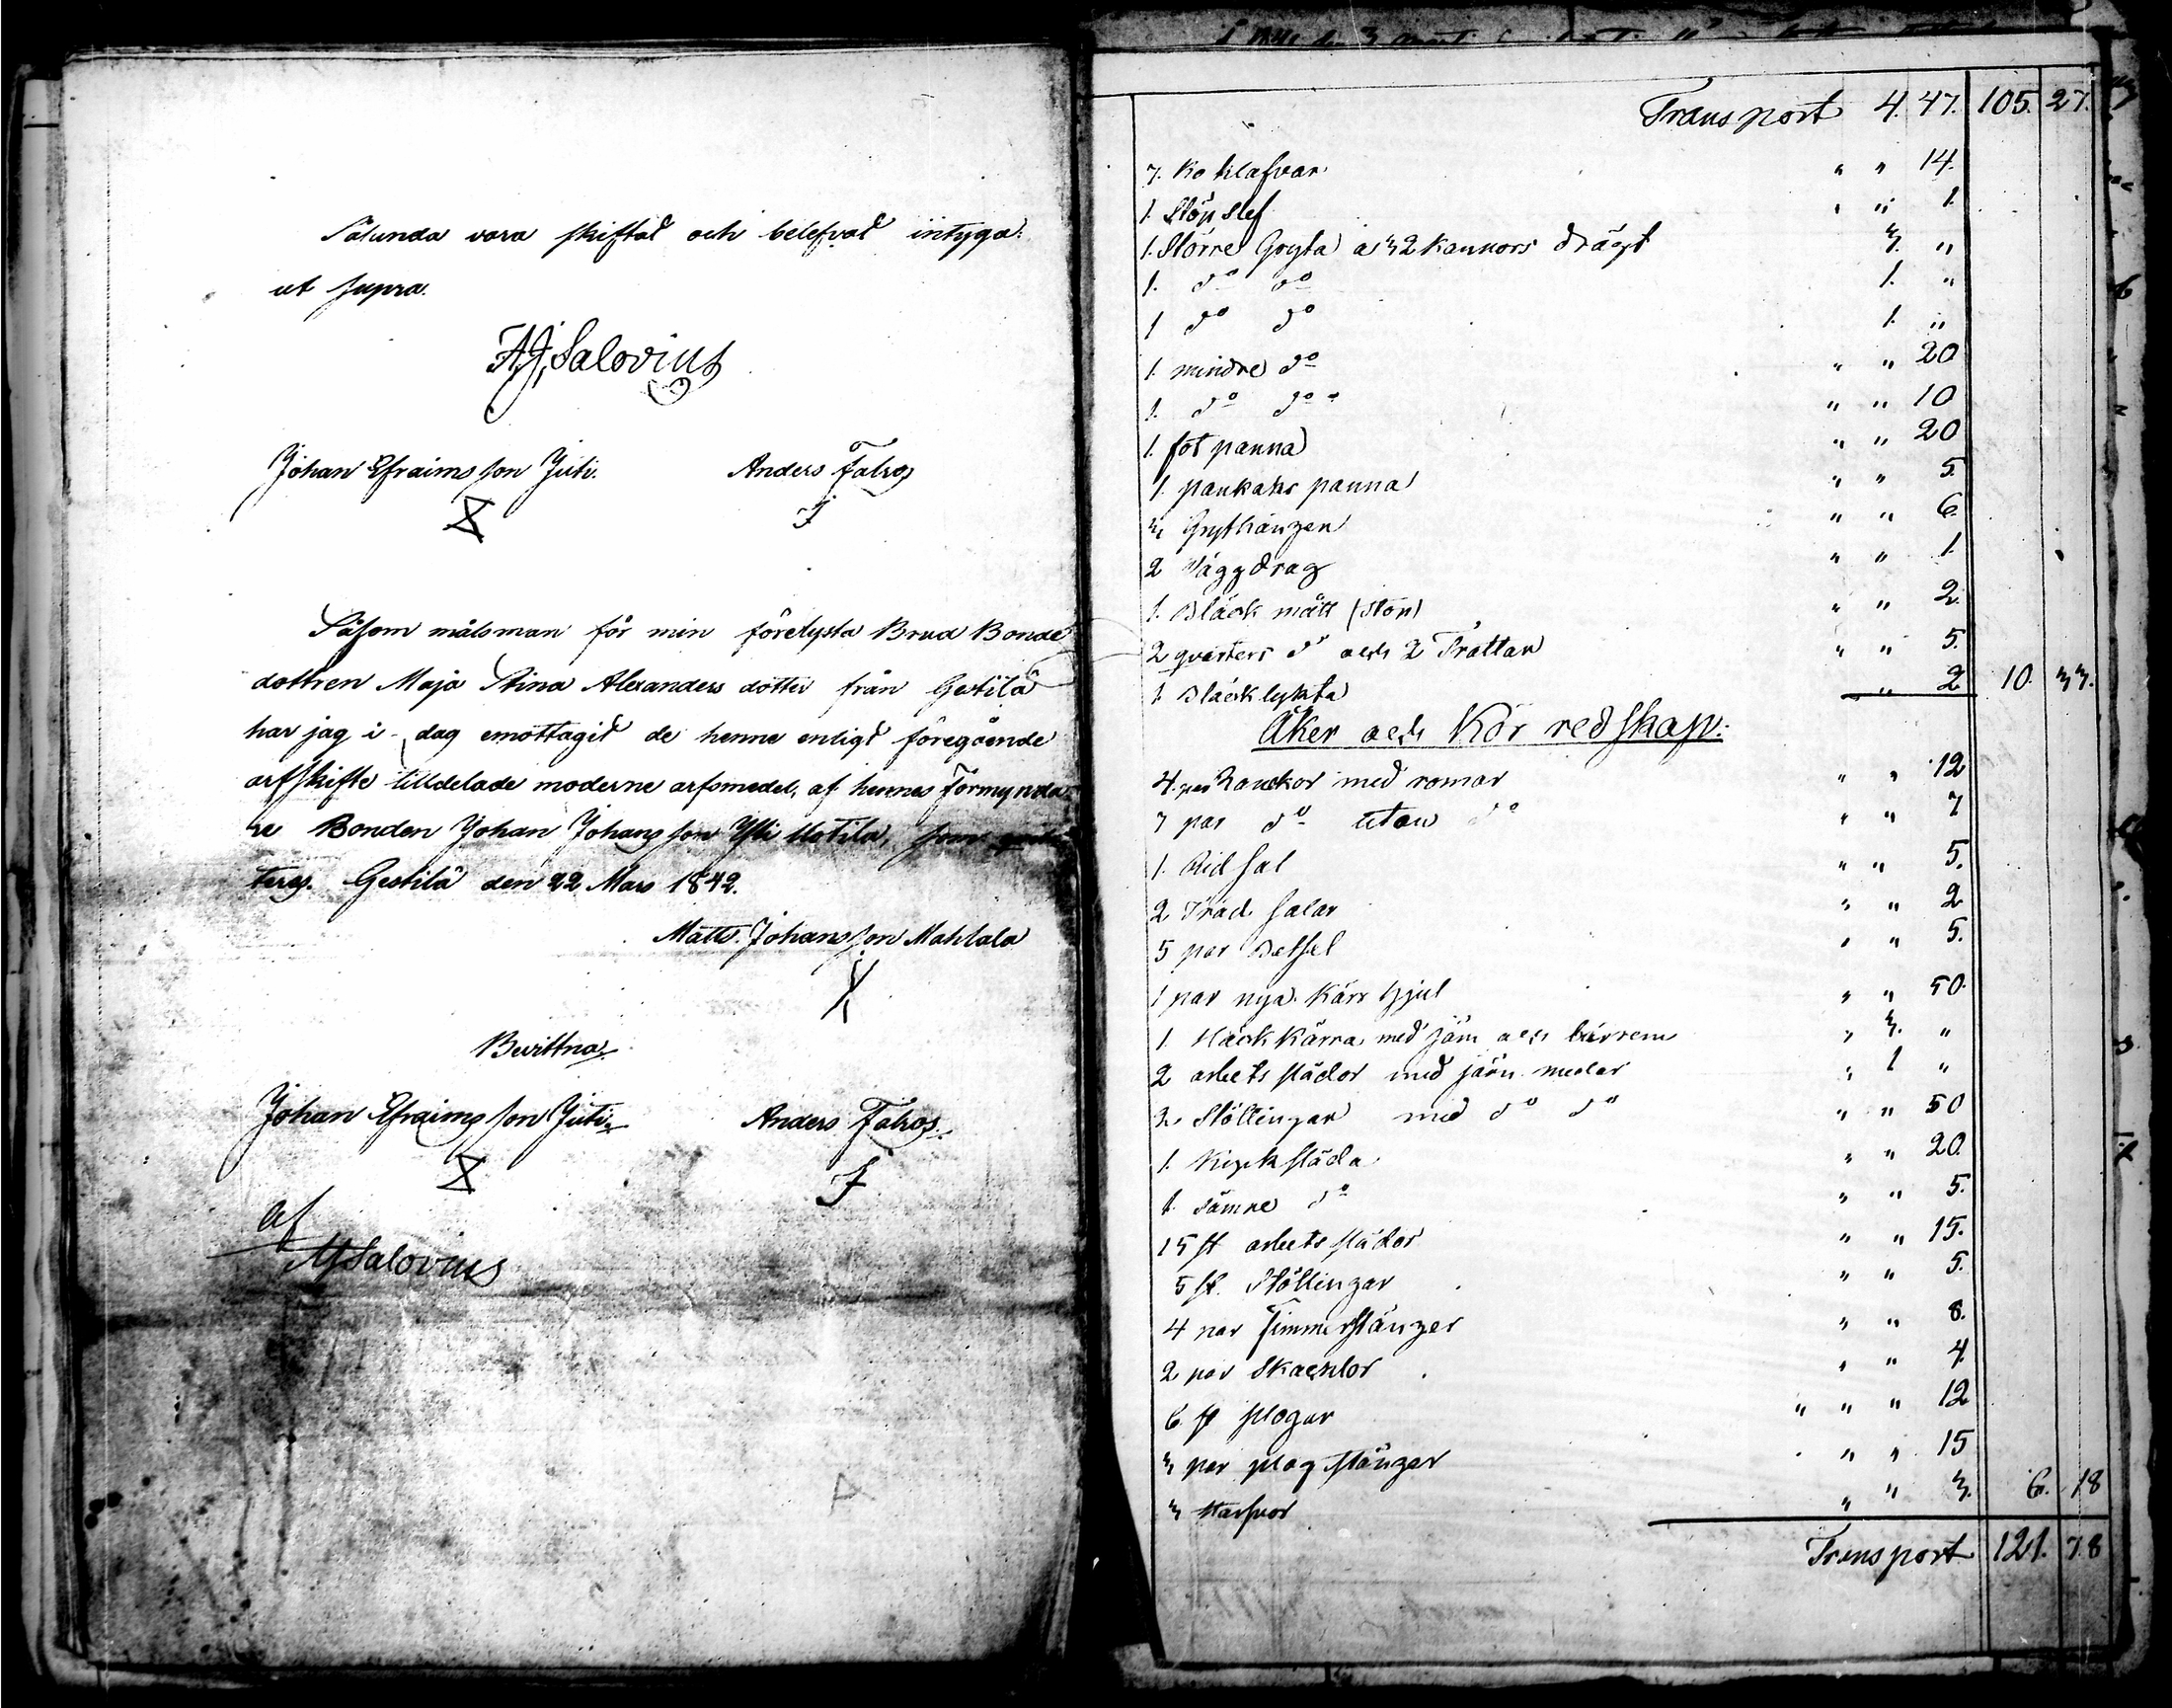 Sålunda vara skiftat och belefvat intyga:
ut supra.
Salovius
Johan Efraims son Juti. Anders Fahros
Såsom målsman för min förelysta Brud Bonde
dottren Maja Stina Alexanders dotter från Gestilä
har jag i dag emottagit de henne enligt föregående
arfskifte tilldelade moderne arfsmedel, af hennes Förmynda
re Bonden Johan Johans son Yli Uotila, som
Gestilä den 22 Mars 1842.
Matts Johans son Mahlala
X
Bevittna
Johan Efraims son Juti Anders Fahros
Salovius
Transport 4. 47. 105. 27.
7. Ko klafvar " " 14.
1. Stöp slef " " 1.
1. Större Gryta a 32 Kannors drägt 3. "
1. do do 1. "
1 do do 1. "
1. mindre do " " 20
1. do do " " 10
1. fot panna " " 20
1. pankaks panna " " 5.
3 Grythängen " " 6.
2 Väggdrag " " 1.
1. Bläck mått (stop) " " 2.
2 qvarters do och 2 Trattar " " 5.
1. Bläck lykta " 2 10. 33.
Åker och Kör redskap:
4. par Ranckor med romar " " 12
7 par do utan do " " 7
1. Rid sal " " 5.
2 Träd salar " " 2
5 par Betsel " " 5.
1 par nya Kärr hjul " " 50.
1. Häck Kärra med järn och 3. "
2 arbets slädor med järn medar " 1 "
2 Stöttingar med do do " " 50
1. Kyrk släda " " 20.
1. sämre do " " 5.
15 st arbets slädor " " 15.
5 st. Stöttingar " " 5.
4 par Timmerstänger " " 8.
2 par Skacklor " " 4
6. st plogar " " " 12
3 par plog stänger " " 15
3 Harfvor " " 3. 6. 18
Transport 121. 78